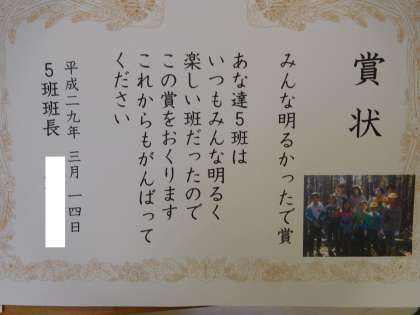 賞状
みんな明るかったで賞
あな達5班は
いつもみんな明るく
楽しい班だったので
この賞をおくります
これからもがんばって
ください
平成二九年 三月 一四日
5班班長